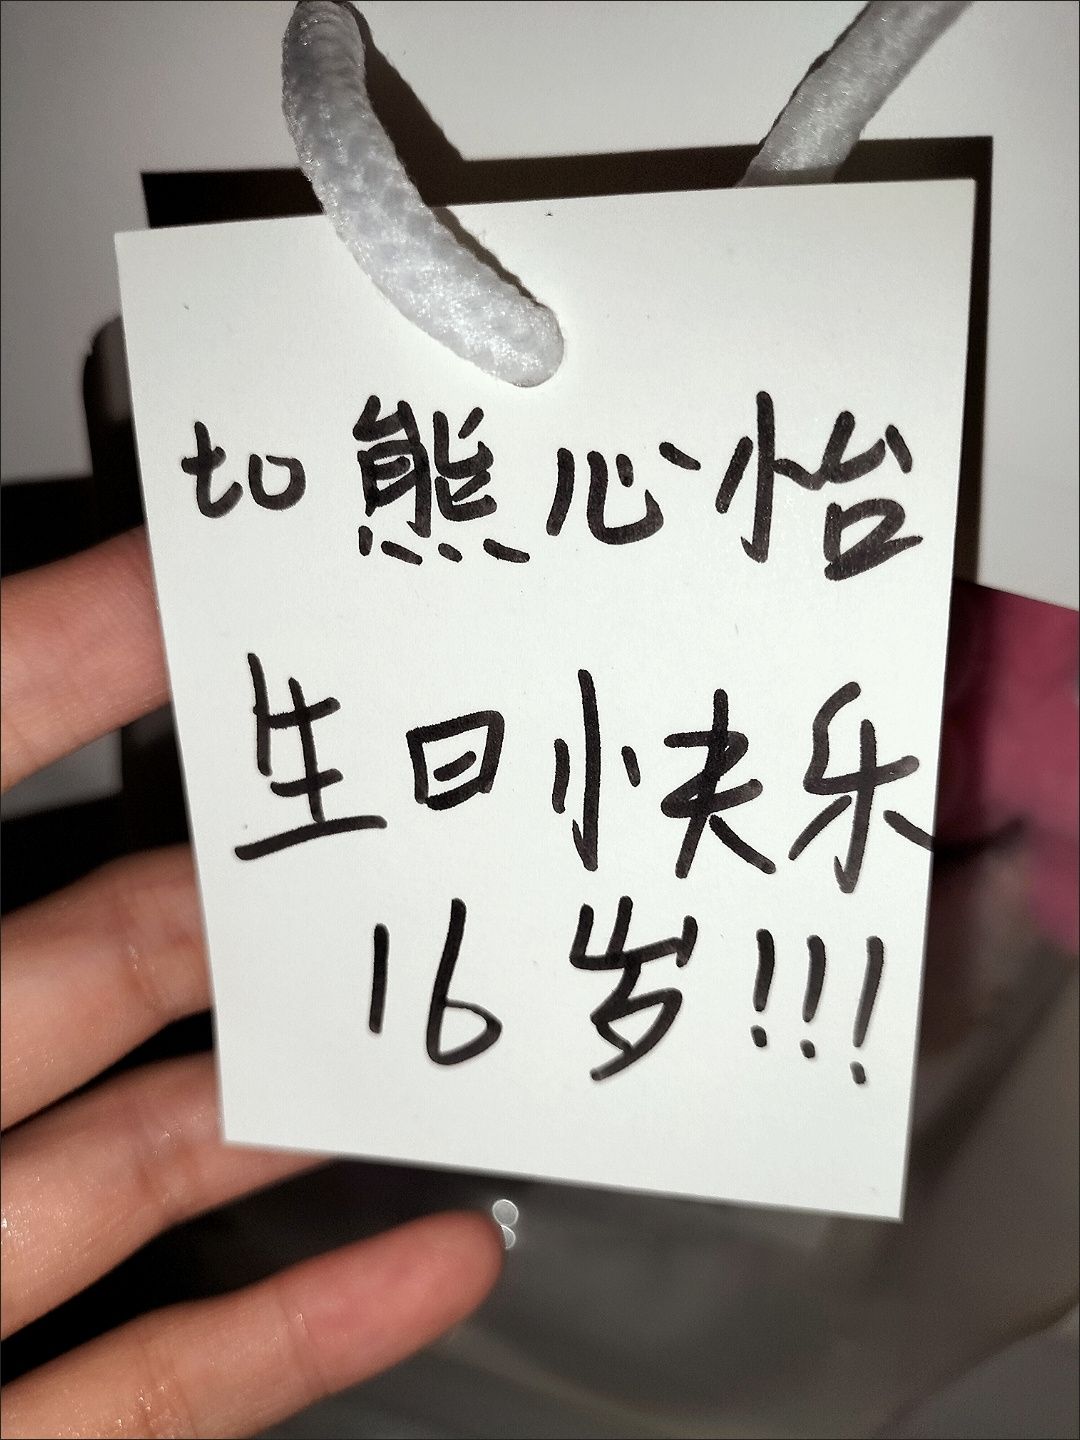 to 熊心怡
生日快乐
16岁!!!